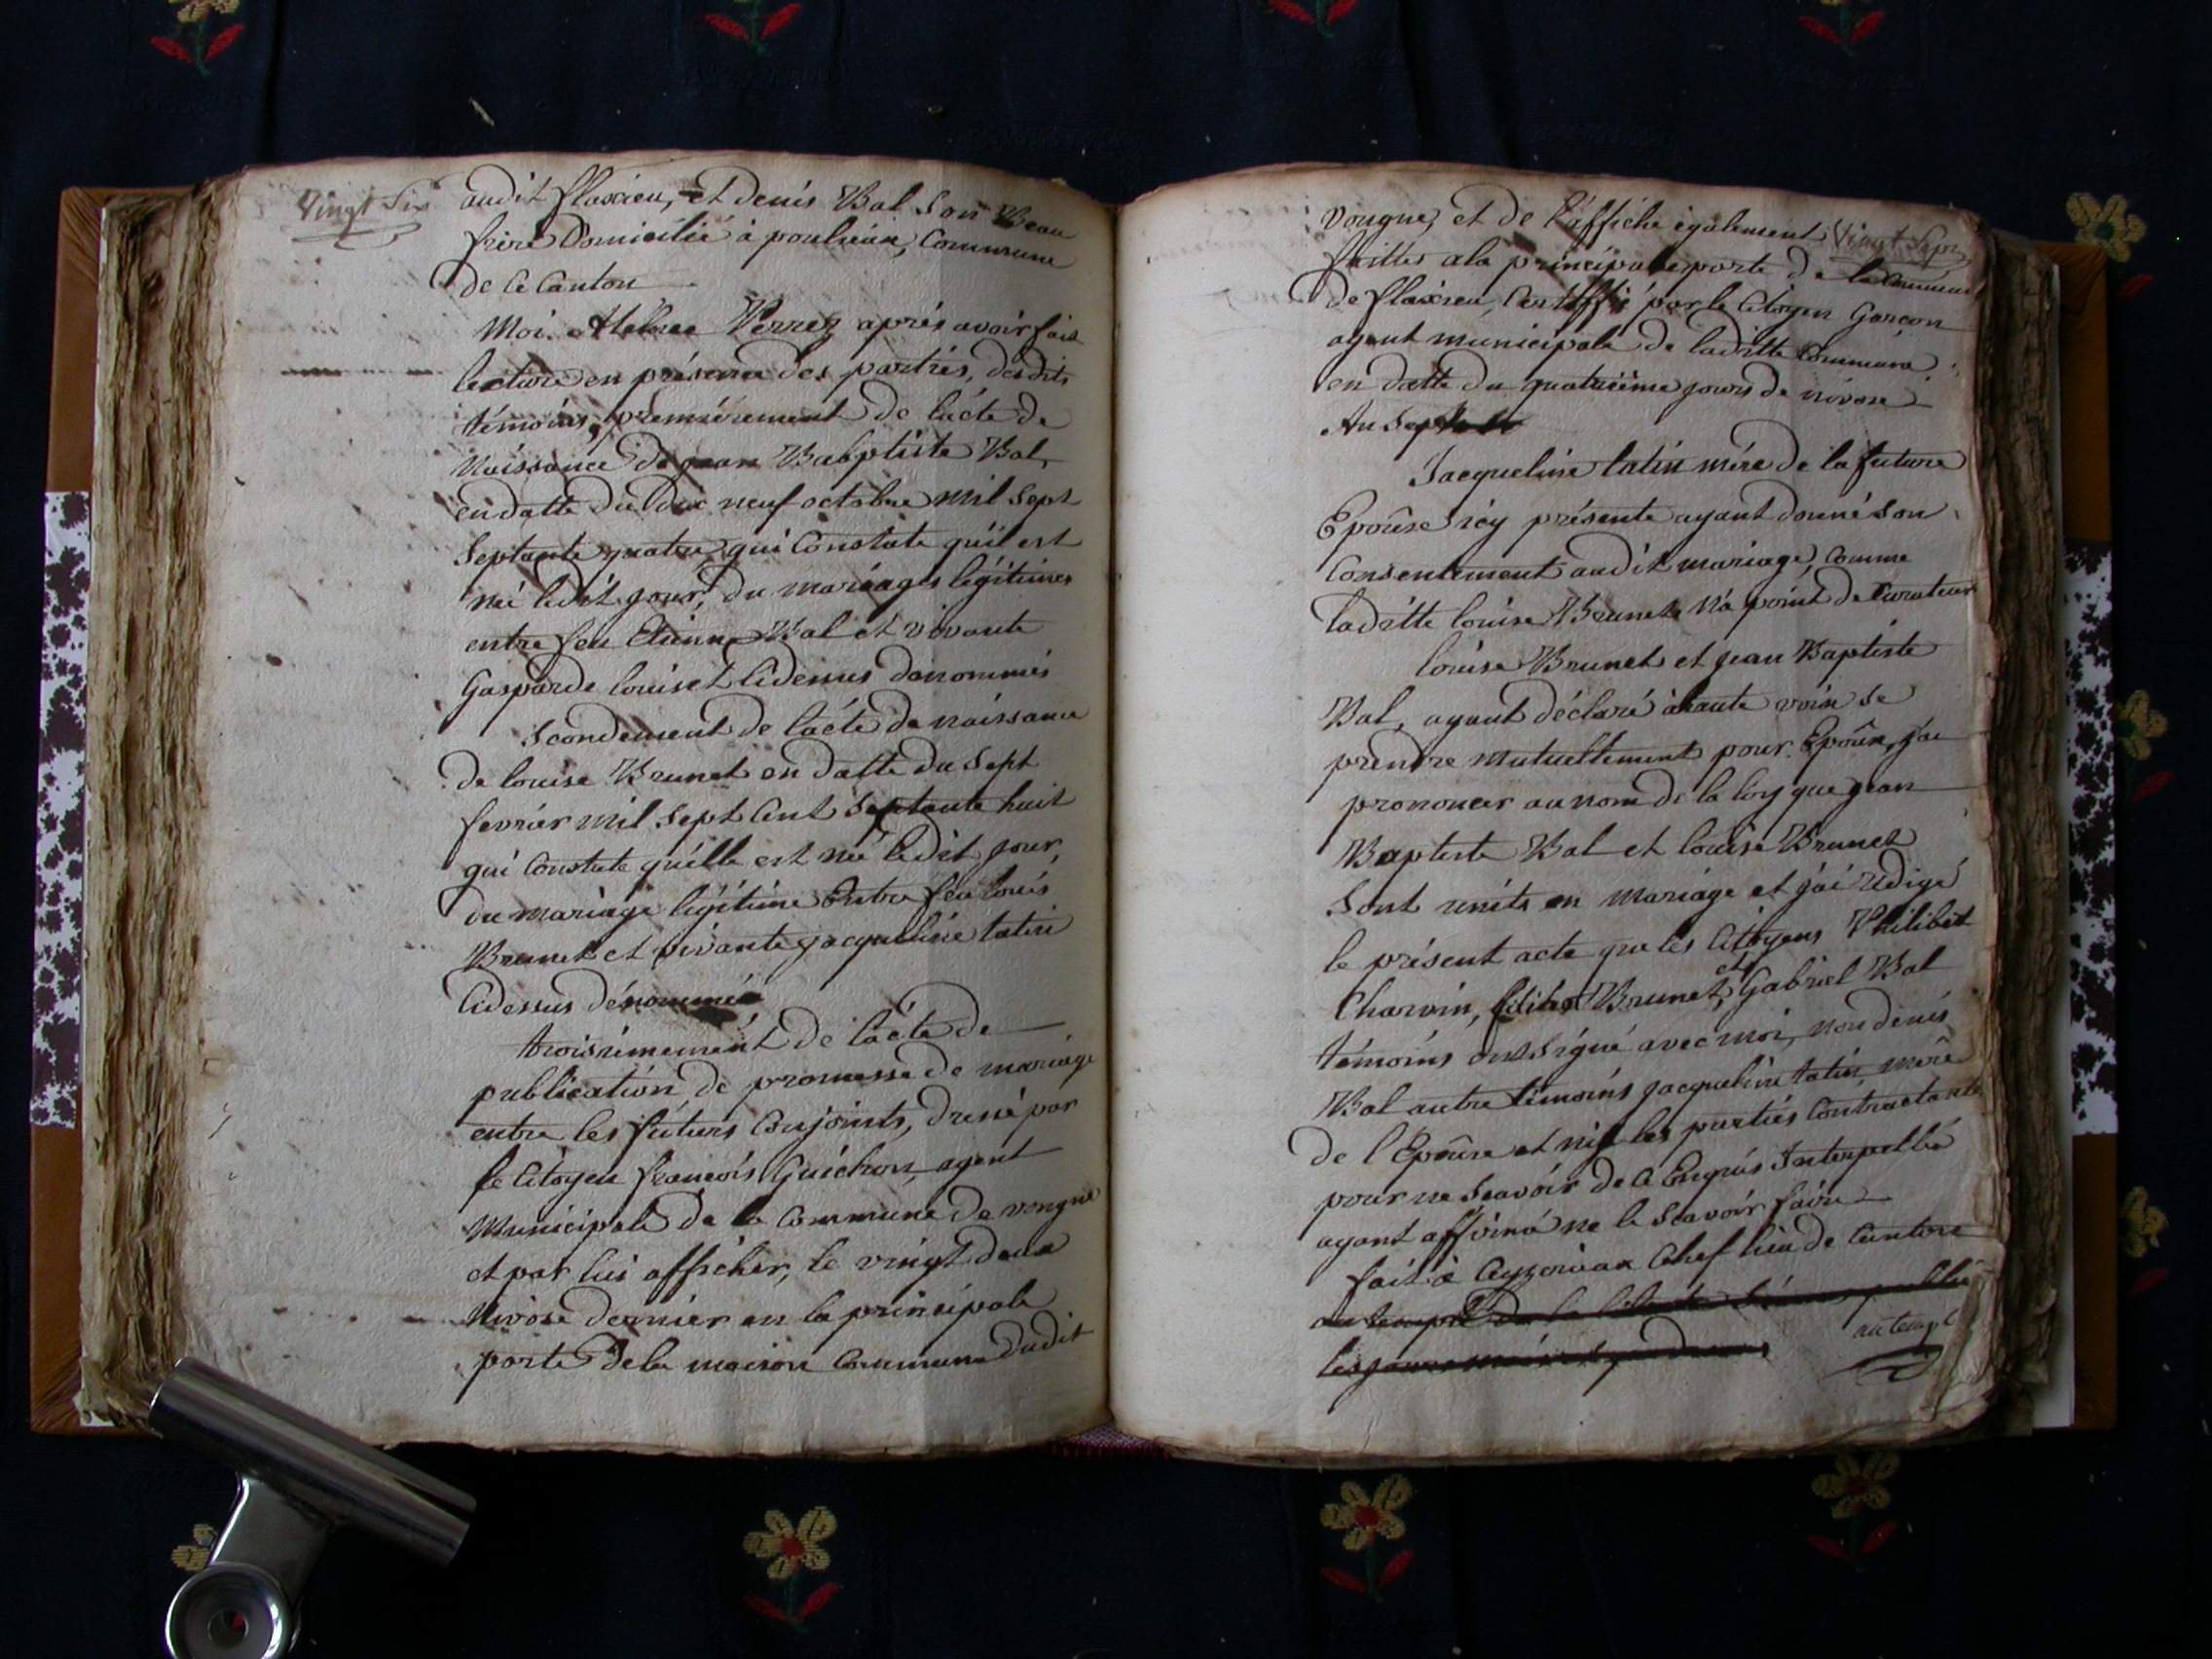 Vingt Six
audit flaxieu, et Denis Bal son Beau
frere Domicilié à poulieux, Commune
de ce Canton
Moi Perrez aprés avoir fait
lecture en présence des partiés, desdits
témoins, premiérement de l'acte de
Naissance de jean Babptiste Bal,
en datte du dix neuf octobre mil sept
septante quatre qui Constate qu'il est
né ledit jour, du mariages légitimes
entre feu Etienne Bal et vivante
Gasparde louiset Cidessus dénommés
Scondement de l'acte de naissance
de louise Brunet en datte du sept
fevrier mil sept Cent septante huit
qui Constate qu'elle est née ledit jour,
du mariage légitime Entre feu louis
Brunet et vivante jacqueline tatin
Cidessus dénommé
troisiémement de l'acte de
publication de promesse de mariage
entre les futurs Conjoints, dressé par
le Citoyen francois Guichon, agent
Municipale de la Commune de vongne
et par lui afficher, le vingt deux
Nivose dernier en la principale
porte de la maison Commune dudit
Vingt Sept
vongne, et de l'affiche également
faittes a la principale porte de la Commune
de flaxieu, Certiffié par le Citoyen Garcon
agent municipale de laditte Commune
en datte du quatriéme jours de nivose
An Sept
Jacqueline tatin mére de la future
Epouse icy présente ayant donné son
Consentement audit mariage, Comme
laditte louise Brunet n'a point de Curateur
louise Brunet et jean Baptiste
Bal, ayant déclaré à haute voix se
prendre mutuellement pour Epoux, j'ai
prononcer au nom de la loy que jean
Baptiste Bal et louise Brunet
Sont units en mariage et j'ai rédigé
le présent acte que les Citoyens Philibert
Charvin, Brunet, et Gabriel Bal
témoins ont signé avec moi, non denis
Bal autre témoins jacqueline tatin, mére
de l'Epouse et ni les partiés Contractante
pour ne scavoir de ce Enquis Interpellé
ayant affirmé ne le scavoir faire
fait à Ceyzerieux Chef lieu de Canton
au temple de la
les jour
au templ